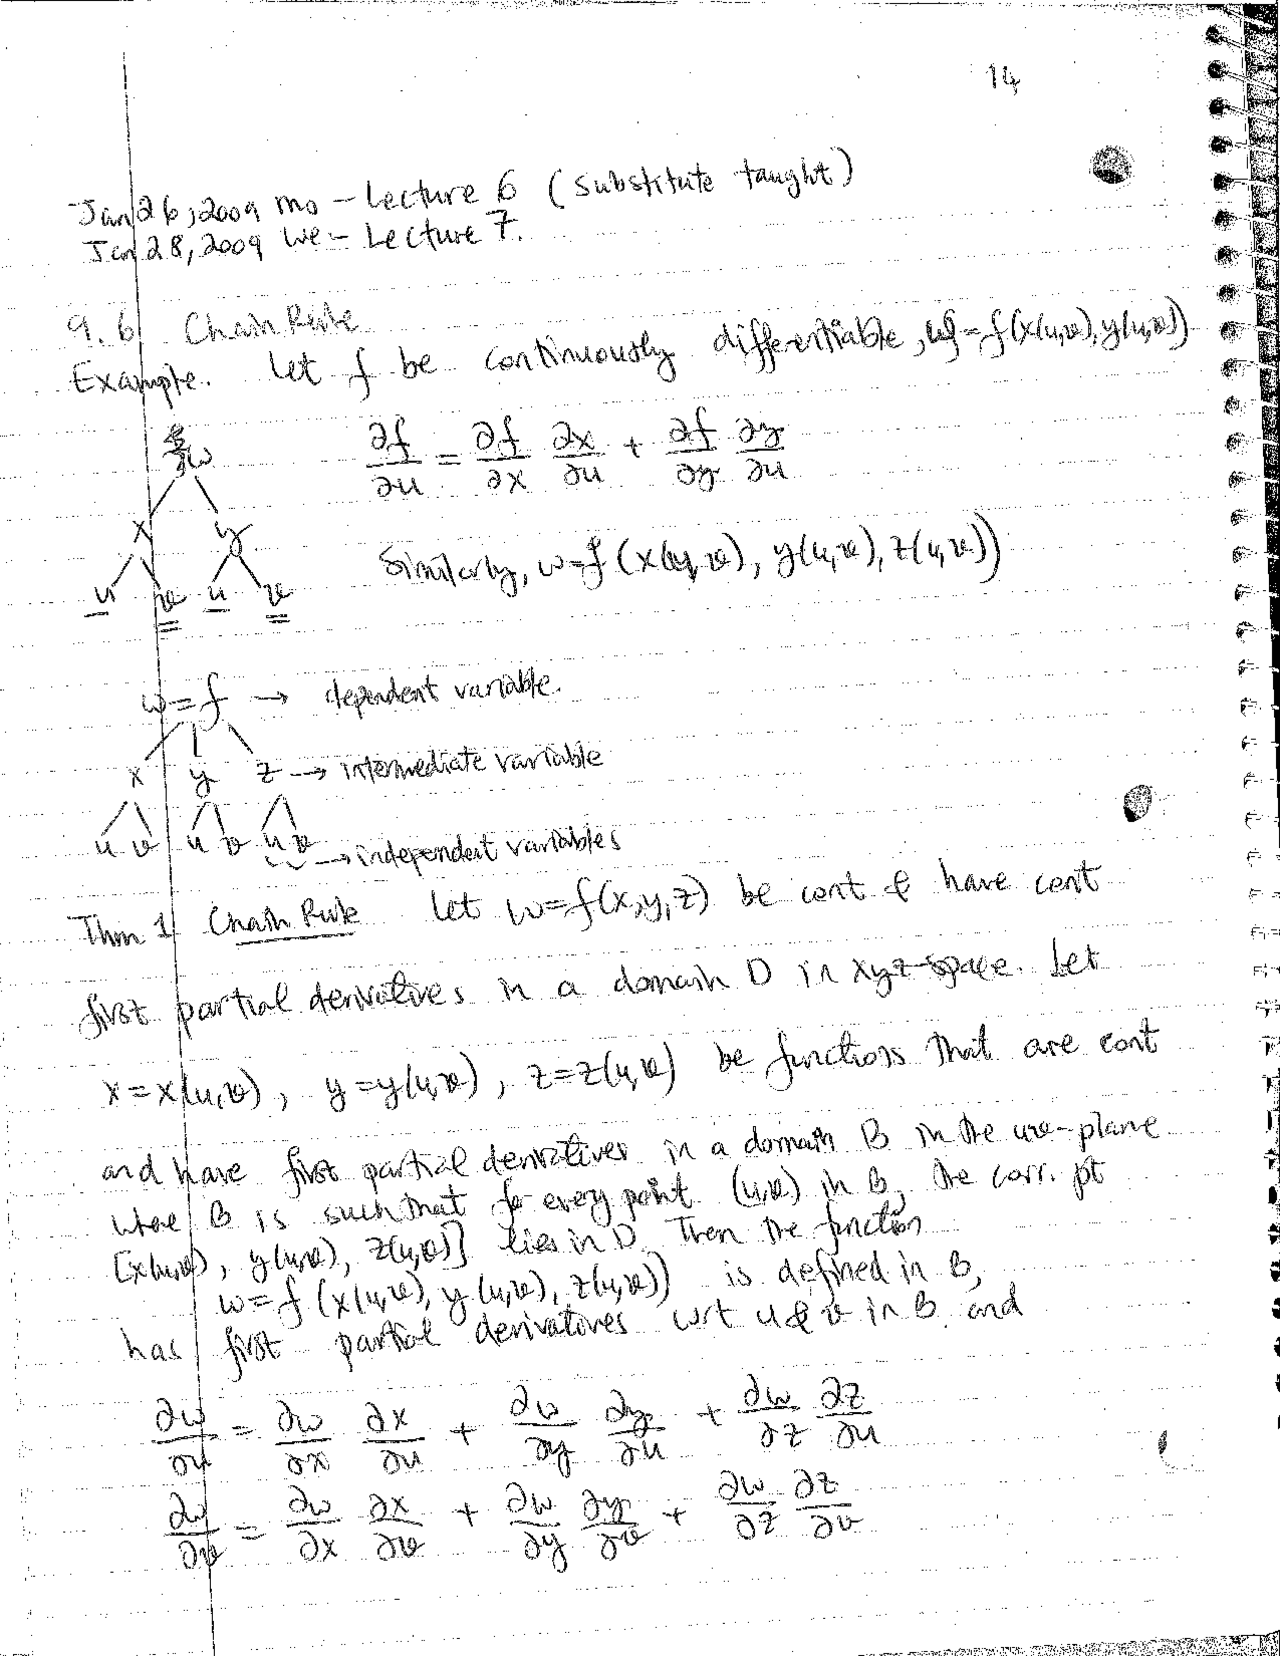 14
Jan 26, 2009 Mo - Lecture 6 (substitute taught)
Jan 28, 2009 We - Lecture 7.
9.6 Chain Rule
Example. Let f be continuously differentiable, w = f(x(u,v), y(u,v))
w
∂f/∂u = ∂f/∂x ∂x/∂u + ∂f/∂y ∂y/∂u
x y
Similarly, w=f(x(u,v), y(u,v), z(u,v))
u v u v
w=f → dependent variable.
x y z → intermediate variable
u v u v u v → independent variables
Thm 1 Chain Rule Let w=f(x,y,z) be cont & have cont
first partial derivatives in a domain D in xyz-space. Let
x=x(u,v), y=y(u,v), z=z(u,v) be functions that are cont
and have first partial derivatives in a domain B in the uv-plane
where B is such that for every point (u,v) in B, the corr. pt
[x(u,v), y(u,v), z(u,v)] lies in D. Then the function
w=f(x(u,v), y(u,v), z(u,v)) is defined in B,
has first partial derivatives wrt u & v in B and
∂w/∂u = ∂w/∂x ∂x/∂u + ∂w/∂y ∂y/∂u + ∂w/∂z ∂z/∂u
∂w/∂v = ∂w/∂x ∂x/∂v + ∂w/∂y ∂y/∂v + ∂w/∂z ∂z/∂v